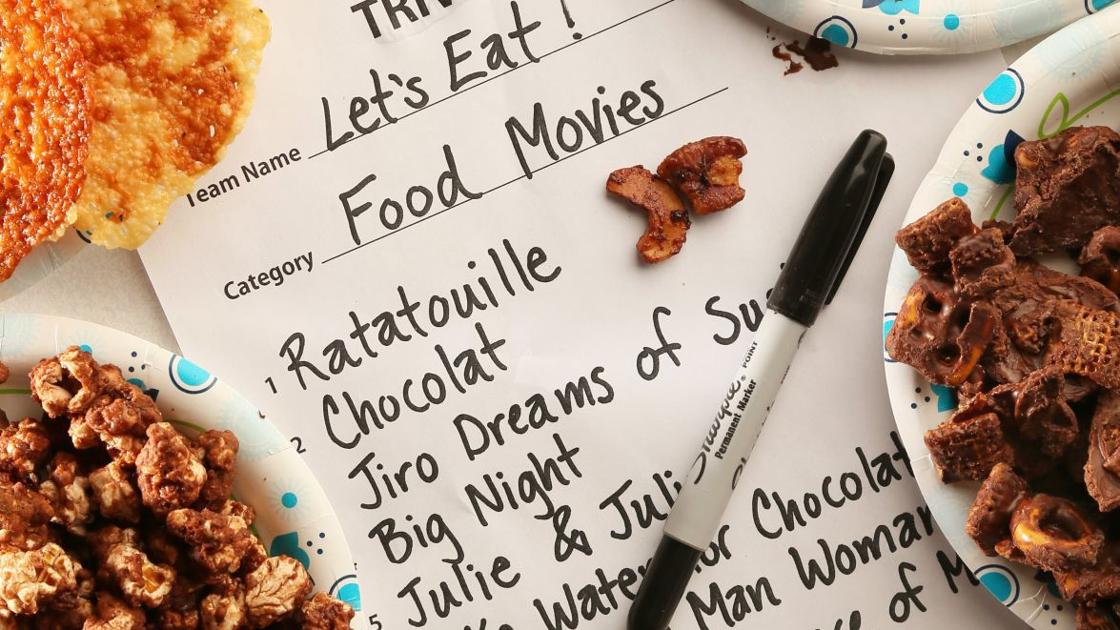 Let's Eat!
Team Name
Food Movies
Category
1 Ratatouille
2 Chocolat
Jiro Dreams of Su
Big Night
5 Julie & Juli
Water for Chocolat
Man Woman
of M
Sharpie.
POINT
Permanent Marker